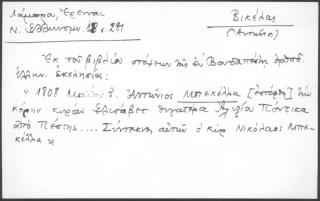 Λάμπρου, Σπυρίδ.
Ν. Ελληνομν. 18 σ. 281
Βικέλας
(Αντών.)
Ἐκ τοῦ βιβλίου στέψεων τῆς ἐν Βουδαπέστῃ ὀρθοδ.
ἑλλην. ἐκκλησίας:
" 1808 Μαΐου 3. Ἀντώνιος Μπεκέλλα [ἐστέφθη] τὴν
κόρην κυρίαν Ἐλισάβετ θυγατέρα Πόντικα
ἀπὸ Πέστης.... Σύντεκνος αὐτῶν ὁ κὺρ Νικόλαος Μπε-
κέλλα "